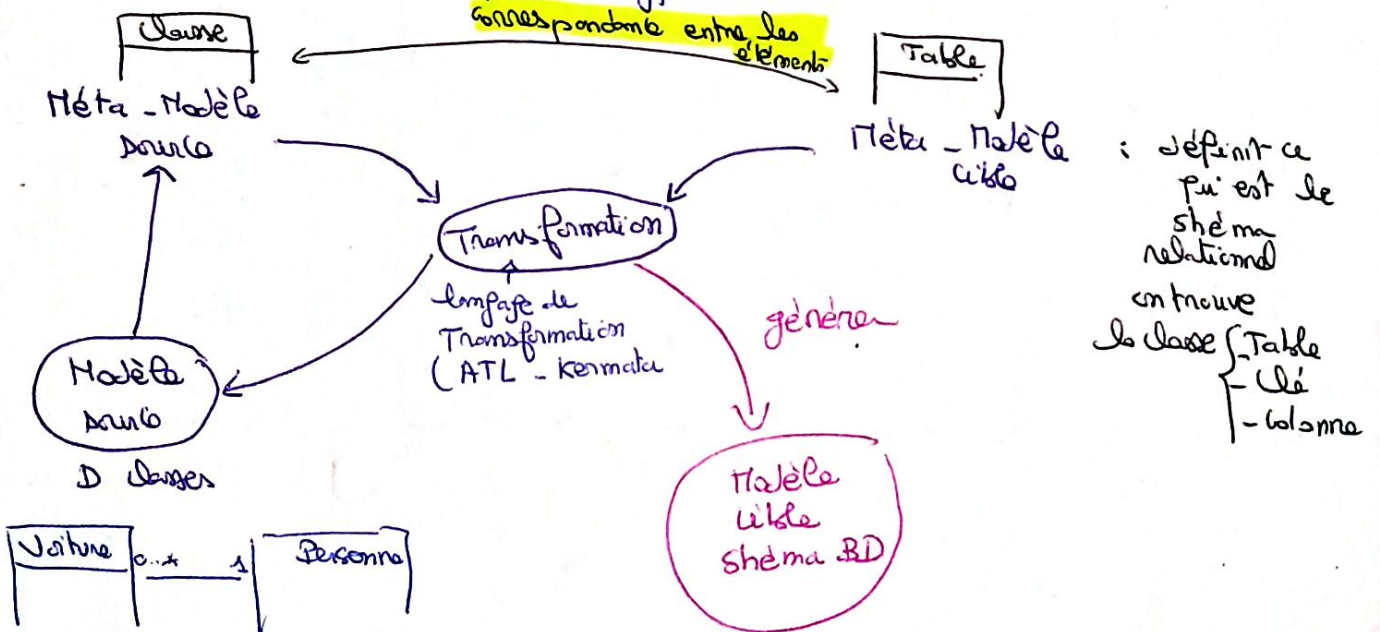 Classe
correspondance entre les
éléments
Table
Méta-Modèle
source
Méta-Modèle
cible
: définit ce
qu'est le
shéma
relationnel
on trouve
la classe { - Table
- Clé
- Colonne
Transformation
langage de
Transformation
(ATL - Kermata
générer
Modèle
source
D classes
Modèle
cible
shéma BD
Voiture 0..* 1 Personne